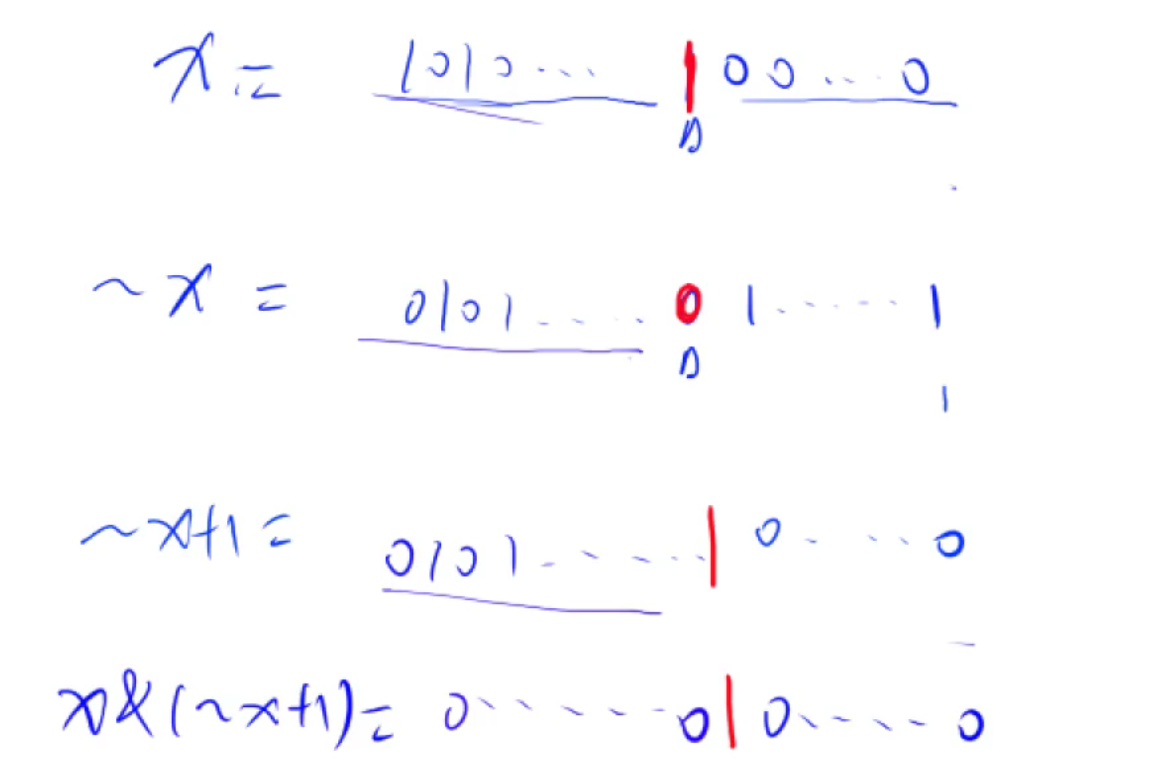 x = 1010... 1 00...0
Δ
~x = 0101..... 0 1.......1
Δ
1
~x+1 = 0101....... 1 0.....0
x&(~x+1) = 0.......0 1 0.....0